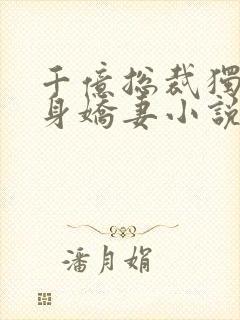 千億總裁獨
身嬌妻小說
潘月娟